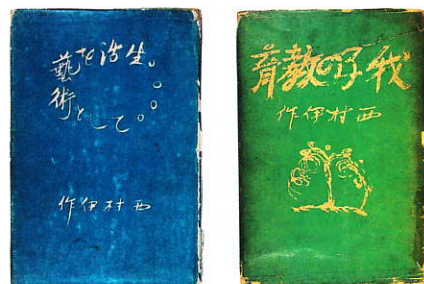 生活を藝
術として。
西村伊作
我子の教育
西村伊作